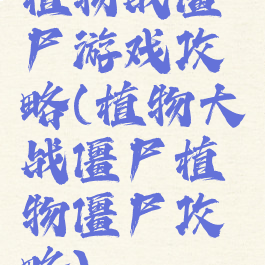 植物战僵
尸游戏攻
略(植物大
战僵尸植
物僵尸攻
略)